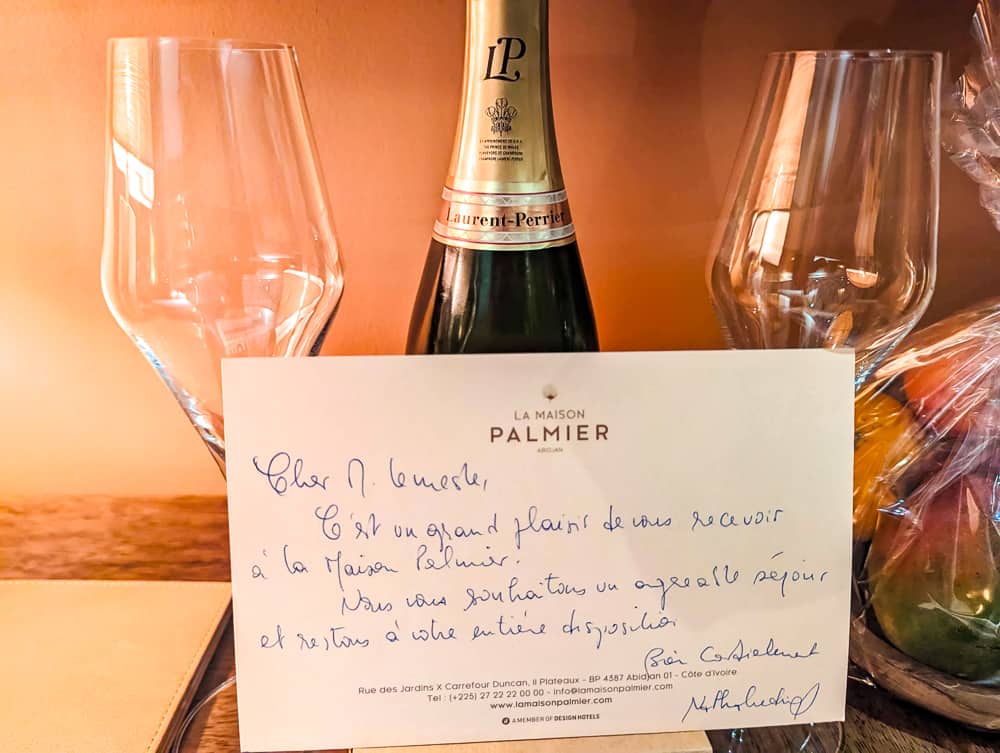 LP
Laurent-Perrier
LA MAISON
PALMIER
ABIDJAN
Cher M. Lemesle,
C'est un grand plaisir de vous recevoir
à la Maison Palmier.
Nous vous souhaitons un agréable séjour
et restons à votre entière disposition
Bien Cordialement
Rue des Jardins X Carrefour Duncan, II Plateaux - BP 4387 Abidjan 01 - Côte d'Ivoire
Tel : (+225) 27 22 22 00 00 - info@lamaisonpalmier.com
www.lamaisonpalmier.com
A MEMBER OF DESIGN HOTELS